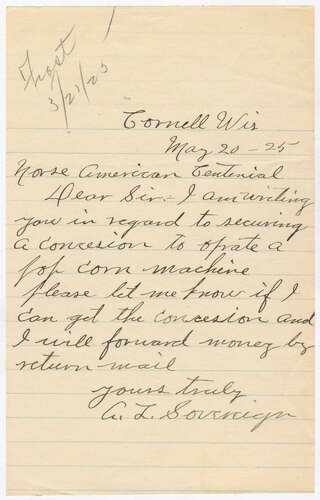 3/21/25
Cornell Wis
May 20 - 25
Norse American Centenial
Dear Sir:- I am writing
you in regard to securing
a concesion to oprate a
pop corn machine
please let me know if I
can get the concesion and
I will forward money by
return mail
yours truly
A. L. Sovereign